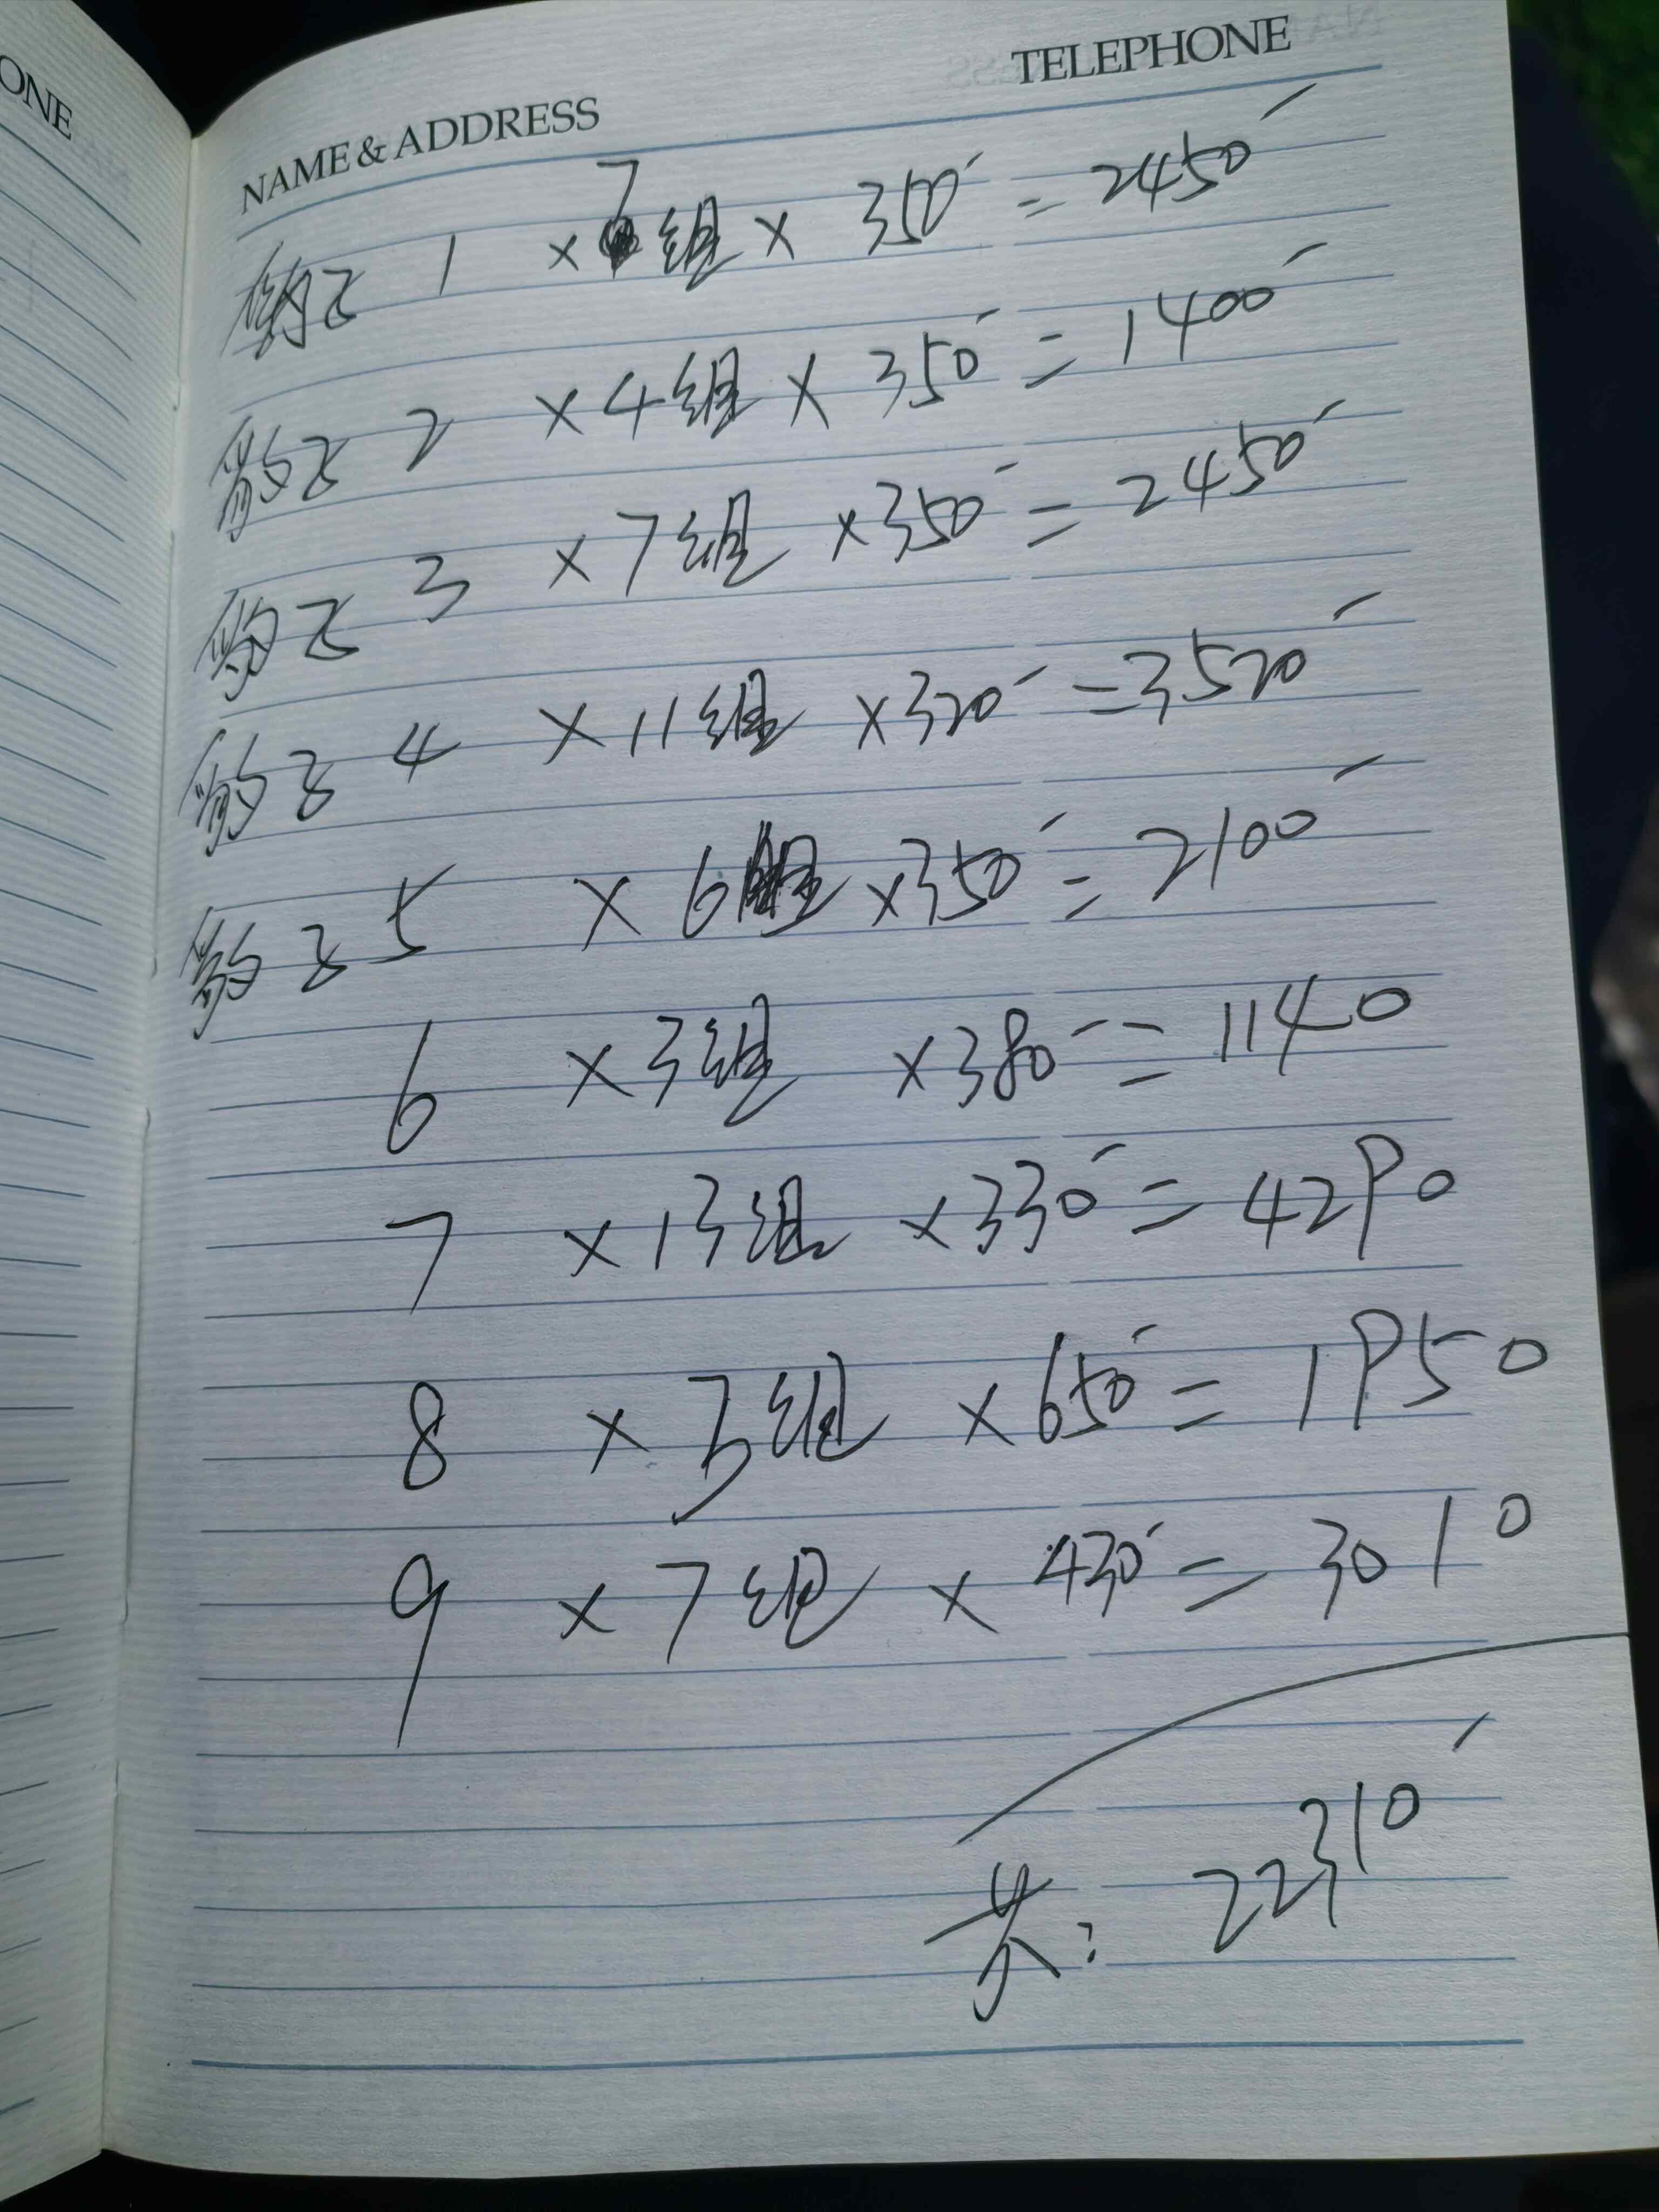 ONE
NAME & ADDRESS TELEPHONE
1 × 7组 × 350 = 2450
2 × 4组 × 350 = 1400
3 × 7组 × 350 = 2450
4 × 11组 × 320 = 3520
5 × 6组 × 350 = 2100
6 × 3组 × 380 = 1140
7 × 13组 × 330 = 4290
8 × 3组 × 650 = 1950
9 × 7组 × 430 = 3010
共: 22310